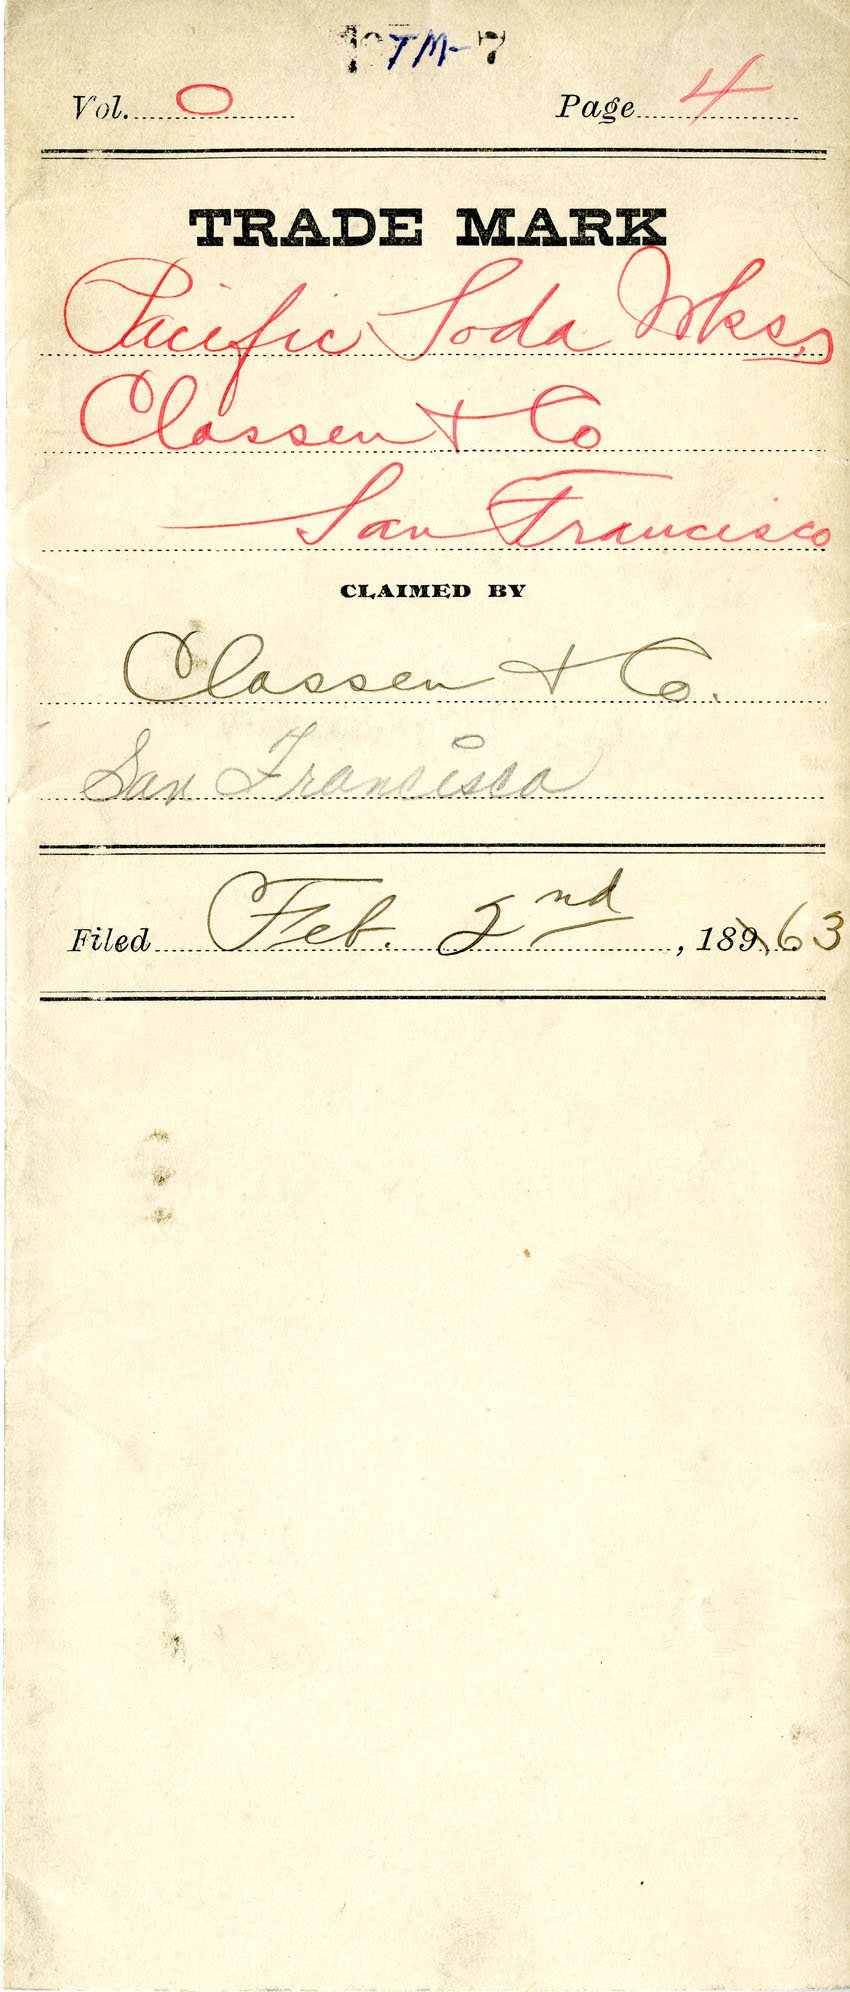 TM-7
Vol. 0 Page 4
TRADE MARK
Pacific Soda Wks,
Classen & Co
San Francisco
CLAIMED BY
Classen & Co.
San Francisco
Filed Feb. 2nd, 189 63